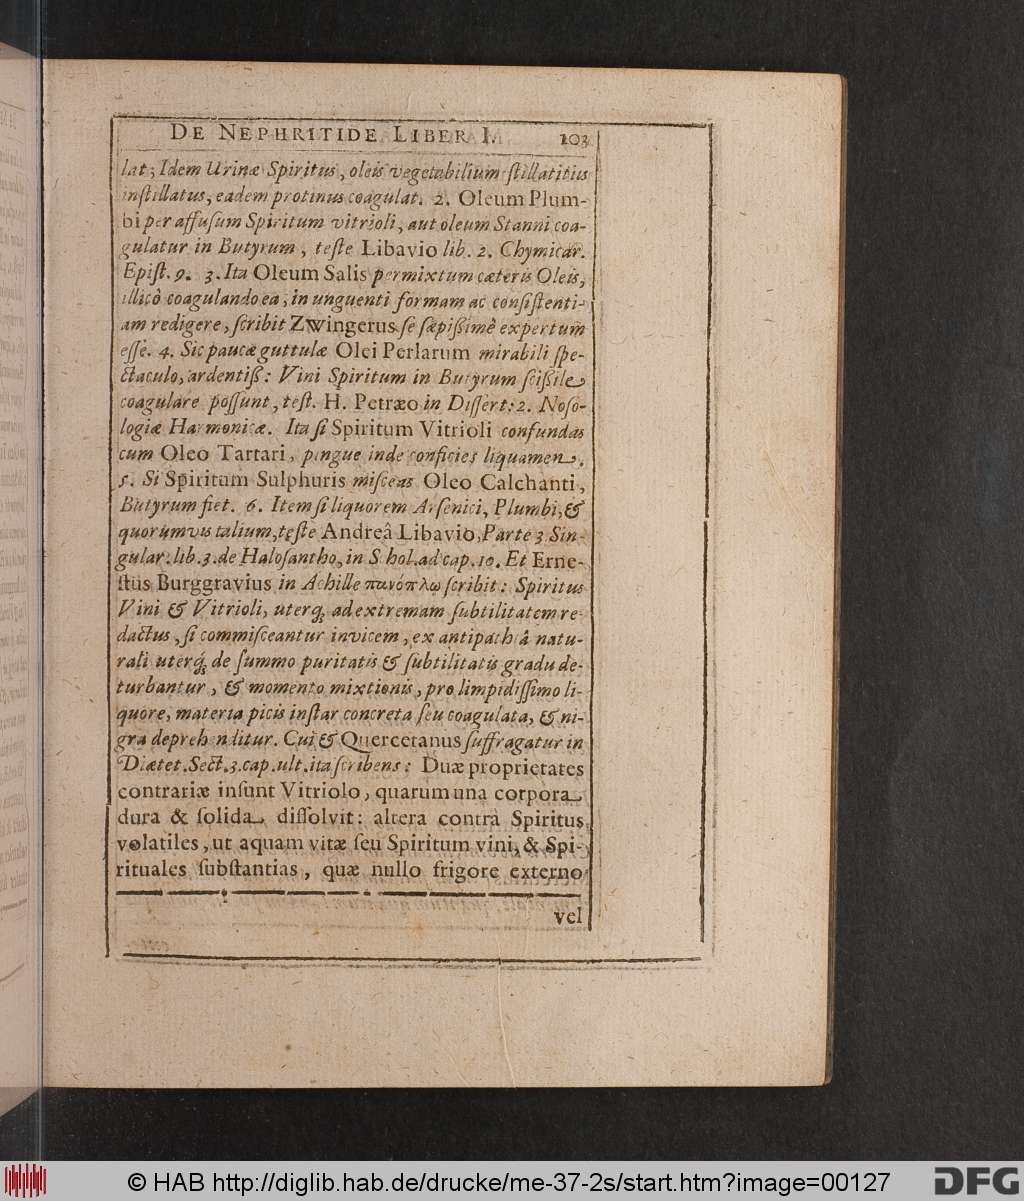 DE NEPHRITIDE LIBER I. 103
lat; Idem Urinæ Spiritus, oleis vegetabilium ſtillatitiis
inſtillatus, eadem protinus coagulat. 2. Oleum Plum-
bi per affuſum Spiritum vitrioli, aut oleum Stanni coa-
gulatur in Butyrum, teſte Libavio lib. 2. Chymicar.
Epiſt. 9. 3. Ita Oleum Salis permixtum cæteris Oleis,
illicò coagulando ea, in unguenti formam ac conſiſtenti-
am redigere, ſcribit Zwingerus ſe ſæpißimè expertum
eſſe. 4. Sic paucæ guttulæ Olei Perlarum mirabili ſpe-
ctaculo, ardentiß: Vini Spiritum in Butyrum ſcißile
coagulare poſſunt, teſt. H. Petræo in Diſſert: 2. Noſo-
logiæ Harmonicæ. Ita ſi Spiritum Vitrioli confundas
cum Oleo Tartari, pingue inde conficies liquamen.
5. Si Spiritum Sulphuris miſceas Oleo Calchanti,
Butyrum fiet. 6. Item ſi liquorem Arſenici, Plumbi, &
quorumvis talium, teſte Andreâ Libavio, Parte 3 Sin-
gular. lib. 3. de Haloſantho, in Schol. ad cap. 10. Et Erne-
ſtus Burggravius in Achille πανόπλῳ ſcribit: Spiritus
Vini & Vitrioli, uterq; ad extremam ſubtilitatem re-
dactus, ſi commiſceantur invicem, ex antipathiâ natu-
rali uterq; de ſummo puritatis & ſubtilitatis gradu de-
turbantur, & momento mixtionis, pro limpidiſſimo li-
quore, materia picis inſtar concreta ſeu coagulata, & ni-
gra deprehenditur. Cui & Quercetanus ſuffragatur in
Diætet. Sect. 3. cap. ult. ita ſcribens: Duæ proprietates
contrariæ inſunt Vitriolo, quarum una corpora
dura & ſolida diſſolvit: altera contrà Spiritus
volatiles, ut aquam vitæ ſeu Spiritum vini, & Spi-
rituales ſubſtantias, quæ nullo frigore externo
vel
© HAB http://diglib.hab.de/drucke/me-37-2s/start.htm?image=00127
DFG